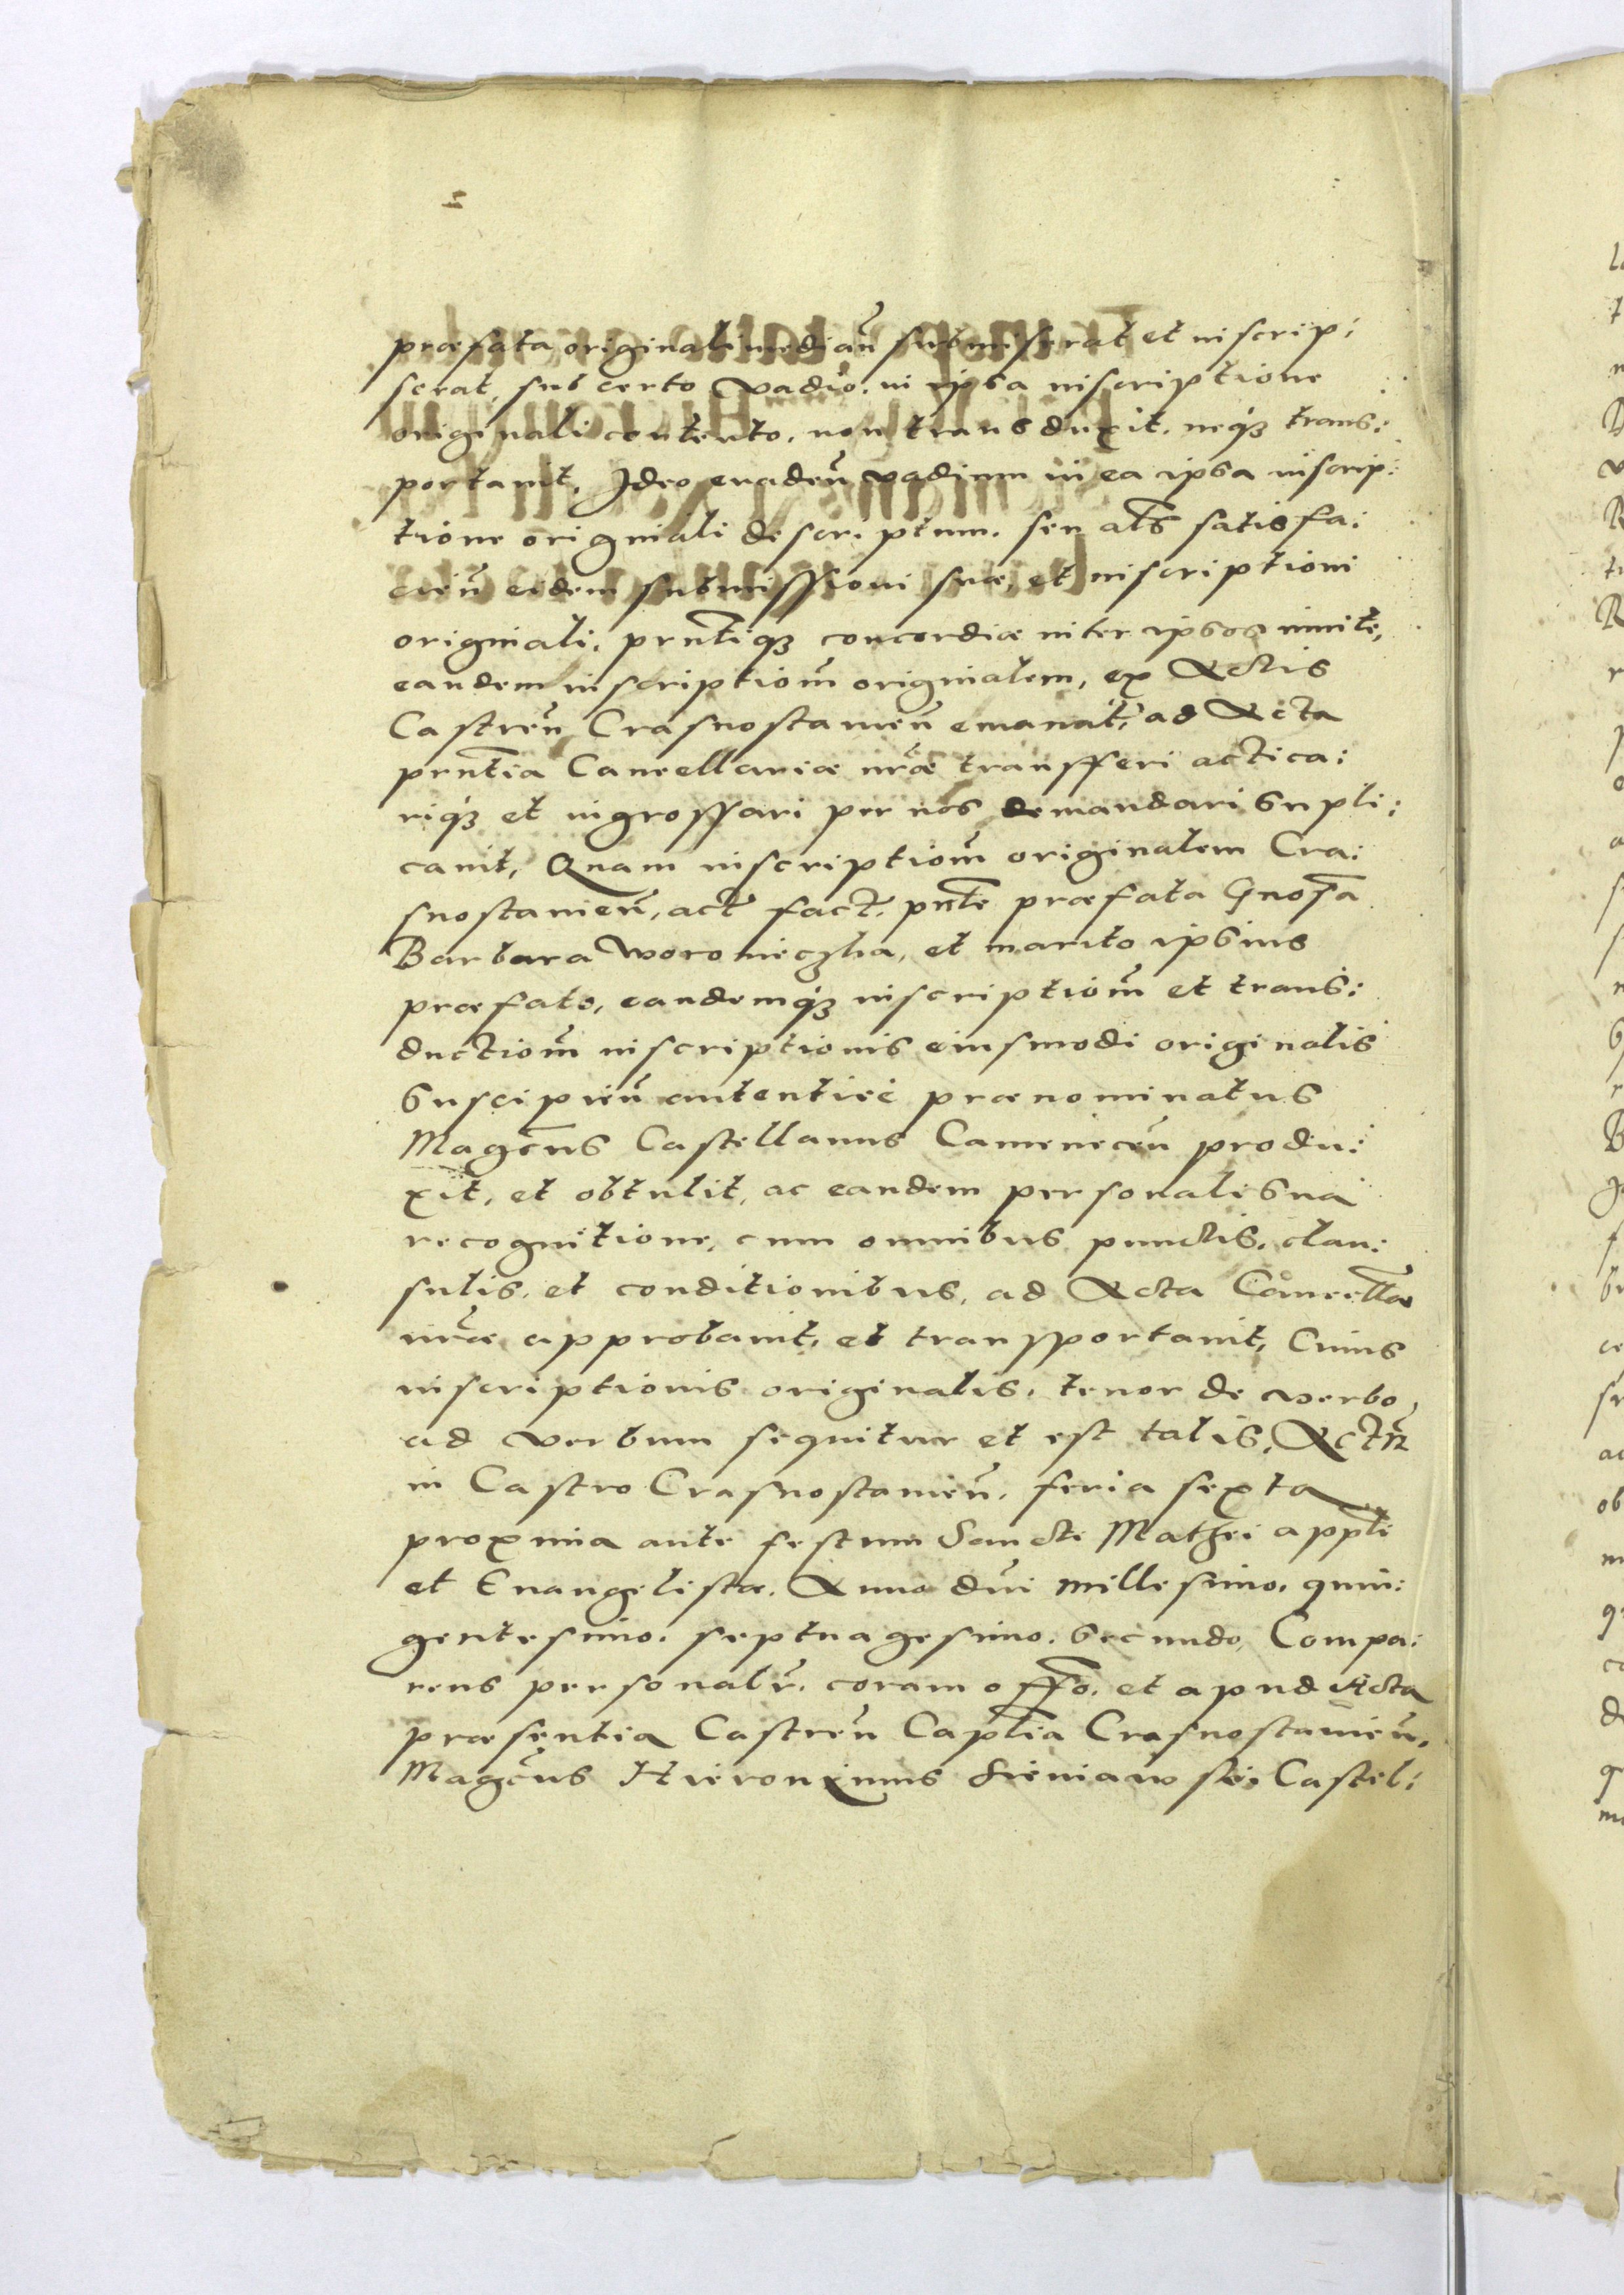 præfata originali median̄ submiserat et inscrip:
serat, sub certo vadio, in ipsa inscriptione
originali contento, non transduxit, neq₃ trans:
portavit, Ideo evaden̄ vadium in ea ipsa inscrip:
tione originali descriptum, seu al̄s satisfa:
cien̄ eidem submissioni suæ, et inscriptioni
originali, pn̄tiq₃ concordiæ inter ipsos initæ,
eandem inscription̄m originalem, ex Actis
Castren̄ Crasnostavien̄ emanat̄, ad Acta
pn̄tia Cancellariæ nr̄æ transfferi actica:
riq₃ et ingrossari per nos demandari supli:
cavit, Quam inscription̄m originalem Cra:
snostavien̄, act̄ fact̄, pn̄te præfata Gnosa
Barbara Woroniec₃ka, et marito ipsius
præfato, eandemq₃ inscription̄m et trans:
duction̄m inscriptionis eiusmodi originalis
suscipien̄ autentice prænominatus
Mag̃cus Castellanus Camenecen̄ produ:
xit, et obtulit, ac eandem personali sua
recognitione, cum omnibus punctis, clau:
sulis, et conditionibus, ad Acta Cancellæ
nr̄æ approbavit, et transportavit, Cuius
inscriptionis originalis, tenor de verbo
ad verbum sequitur et est talis, Actn̄
in Castro Crasnostavien̄, feria sexta
proxima ante festum Sancti Mathei appl̄i
et Evangelistæ, Anno dn̄i millesimo, quin:
gentesimo, septuagesimo, secundo, Compa:
rens personalr̄, coram offo, et apud Acta
præsentia Castren̄ Capl̄ia Crasnostavien̄,
Mag̃cus Hieronimus Sieniawski, Castel: